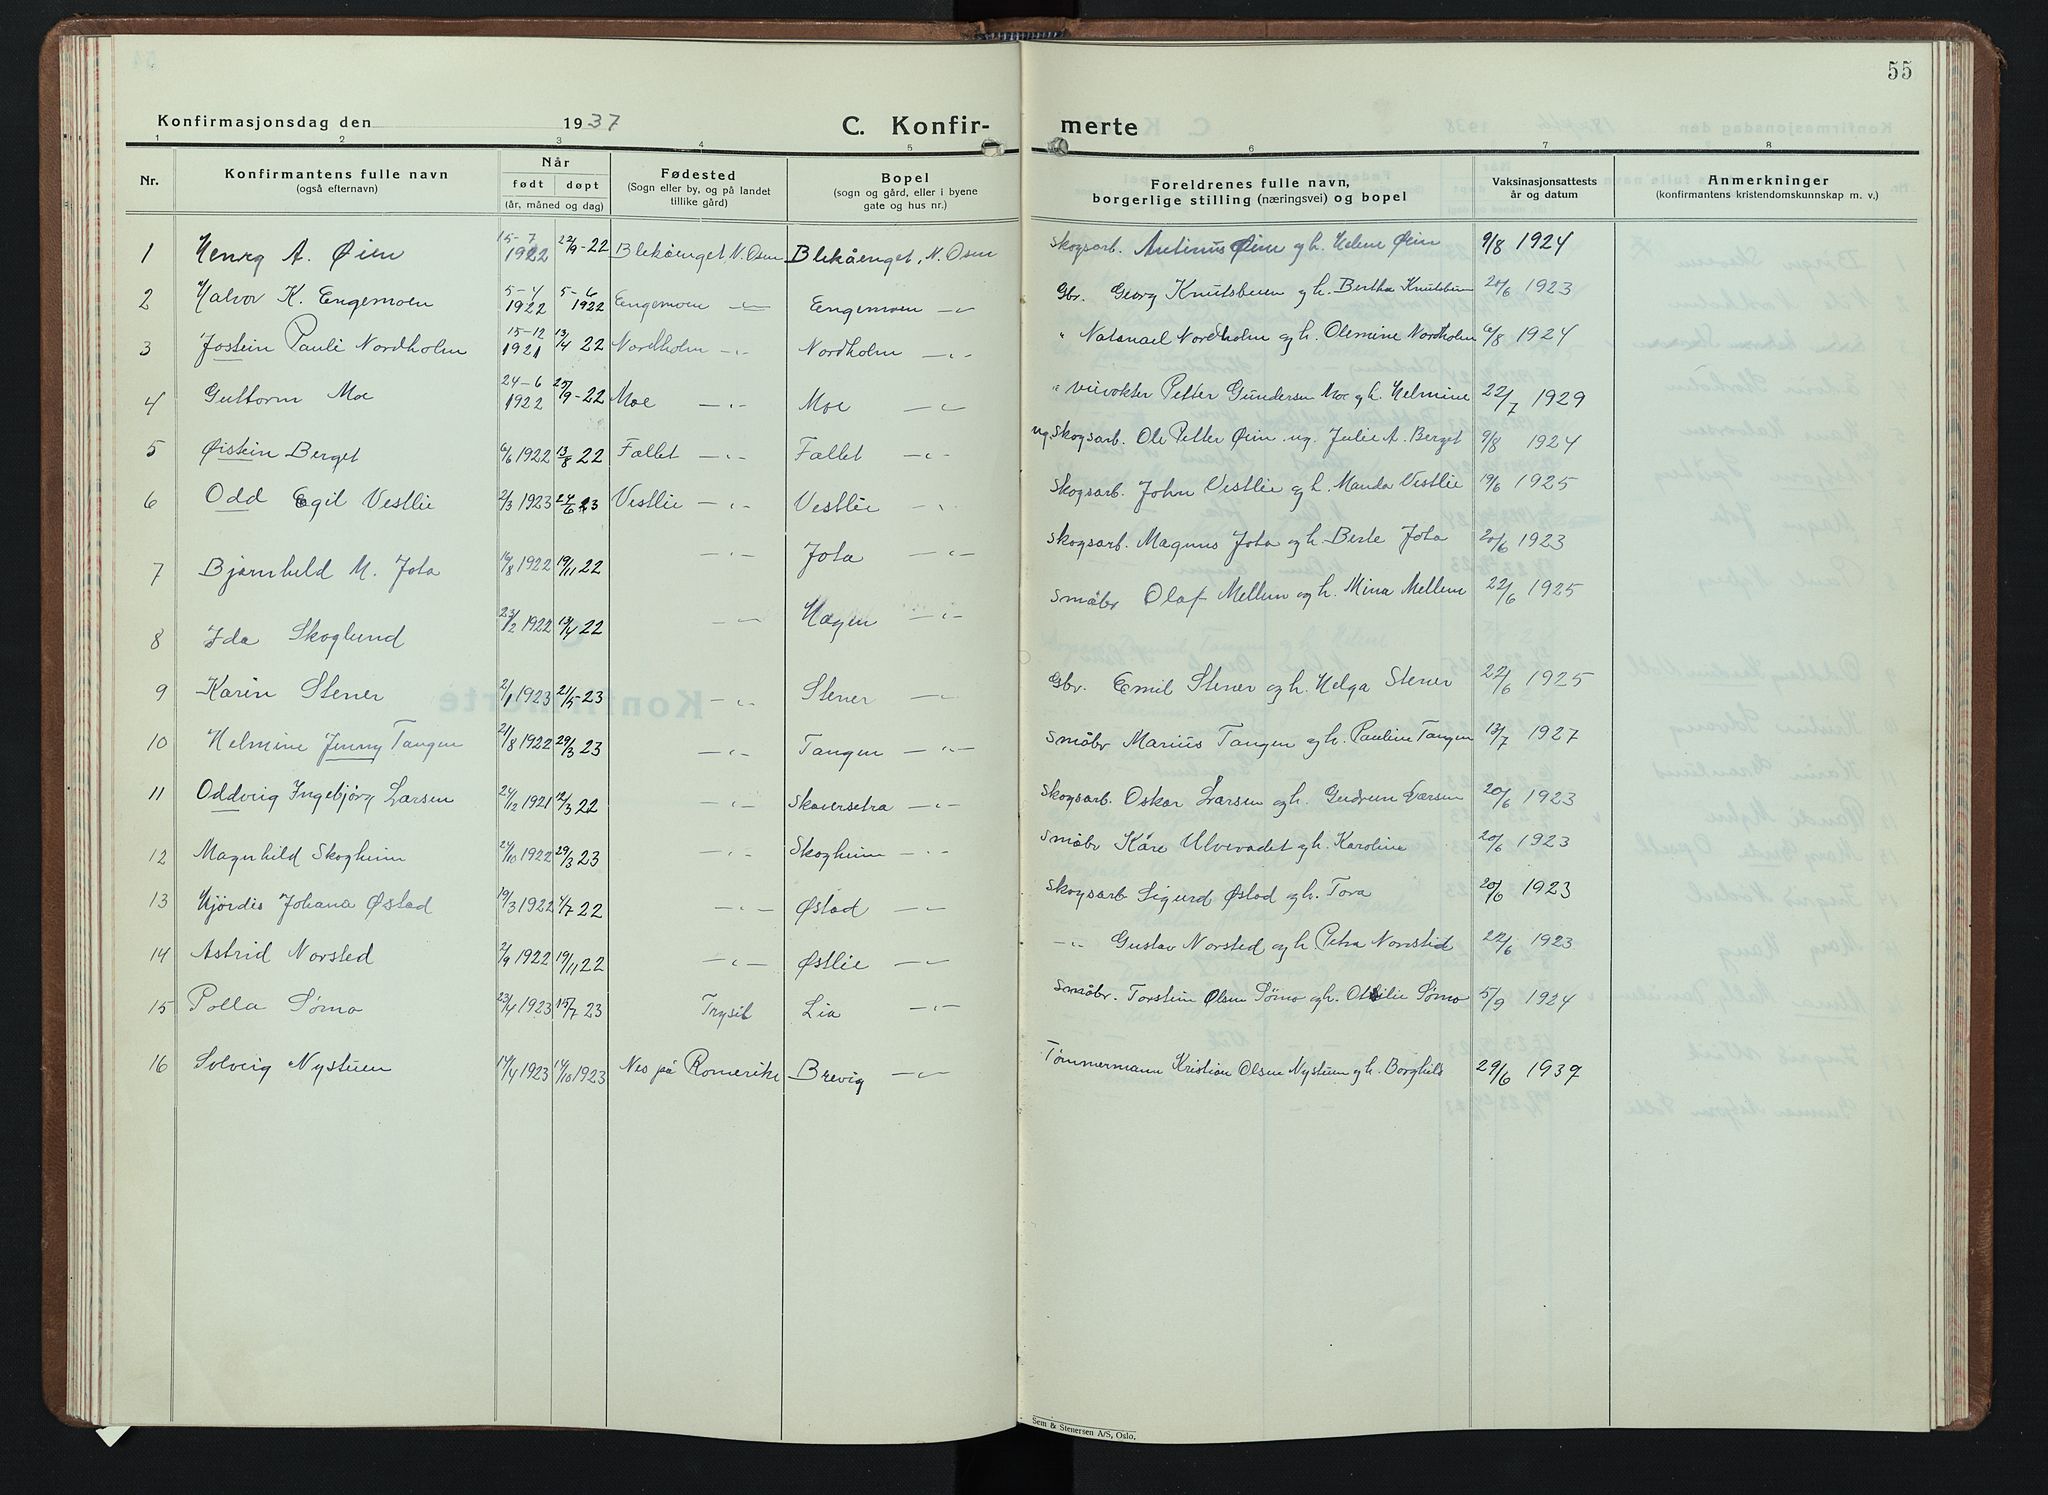 55
Konfirmasjonsdag den 1937 C. Konfir- merte
1 2 3 4 5 6 7 8
Nr. Konfirmantens fulle navn (også efternavn) Når født døpt (år, måned og dag) Fødested (Sogn eller by, og på landet tillike gård) Bopel (sogn og gård, eller i byene gate og hus nr.) Foreldrenes fulle navn, borgerlige stilling (næringsvei) og bopel Vaksinasjonsattests år og datum Anmerkninger (konfirmantens kristendomskunnskap m. v.)
1 Henry A. Øien 15-7 1922 22/9-22 Blekåenget, N. Osen Blekåenget, N. Osen Skogsarb. Antinus Øien og h. Helene Øien 9/8 1924
2 Halvor K. Engemoen 5-4 1922 5-6 1922 Engemoen -"- Engemoen -"- Gbr. Georg Knutsbuen og h. Berthe Knutsbuen 20/6 1923
3 Jostein Pauli Nordholm 15-12 1921 13/4 22 Nordholm -"- Nordholm -"- " Natanael Nordholm og h. Olemine Nordholm 6/8 1924
4 Guttorm Moe 24-6 1922 25/9-22 Moe -"- Moe -"- " Petter Gundersen Moe og h. Helmine 22/7 1929
5 Øistein Berget 6/6 1922 13/8 22 Fallet -"- Fallet -"- ug. Skogsarb. Ole Petter Øien ug. Julie A. Berget 9/8 1924
6 Odd Egil Vestlie 2/3 1923 24/6 23 Vestlie -"- Vestlie -"- Skogsarb. John Vestlie og h. Manda Vestlie 19/6 1925
7 Bjarnhild M. Jota 16/8 1922 19/11 22 -"- Jota -"- Skogsarb. Magnus Jota og h. Berte Jota 20/6 1923
8 Ida Skoglund 23/2 1922 13/4 22 -"- Hagen -"- Småbr Olaf Mellem og h. Mina Mellem 22/6 1925
9 Karin Stener 2/1 1923 21/5-23 -"- Stener -"- Gbr. Emil Stener og h. Helga Stener 22/6 1925
10 Helmine Jenny Tangen 21/8 1922 29/3 23 -"- Tangen -"- Småbr Marius Tangen og h. Pauline Tangen 13/7 1927
11 Oddveig Ingebjørg Larsen 24/12 1921 12/3 22 -"- Skaversetra -"- Skogsarb. Oskar Larsen og h. Gudrun Larsen 20/6 1923
12 Magnhild Skogheim 24/10 1922 29/3 23 -"- Skogheim -"- Småbr Kåre Ulvevadet og h. Karoline 20/6 1923
13 Hjørdis Johana Østad 19/3 1922 4/7 22 -"- Østad -"- Skogsarb Sigurd Østad og h. Tora 20/6 1923
14 Astrid Norsted 2/9 1922 19/11 22 -"- Østlie -"- -"- Gustav Norsted og h Petra Norsted 22/6 1923
15 Polla Sømo 23/4 1923 15/7 23 Trysil Lia -"- Småbr. Torstein Olsen Sømo og h. Otilie Sømo 5/9 1924
16 Solveig Nystuen 14/4 1923 14/10 1923 Nes på Romerike Brevig -"- Tømmermann Kristian Olsen Nystuen og h. Borghild 29/6 1937
Sem & Stenersen A/S, Oslo.